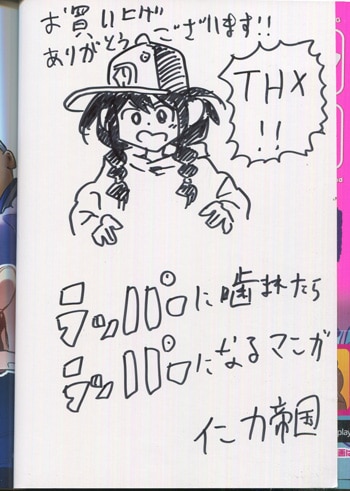 お買い上げ
ありがとうございます!!
THX
!!
ラッパーに噛まれたら
ラッパーになるマンガ
仁力帝国
play